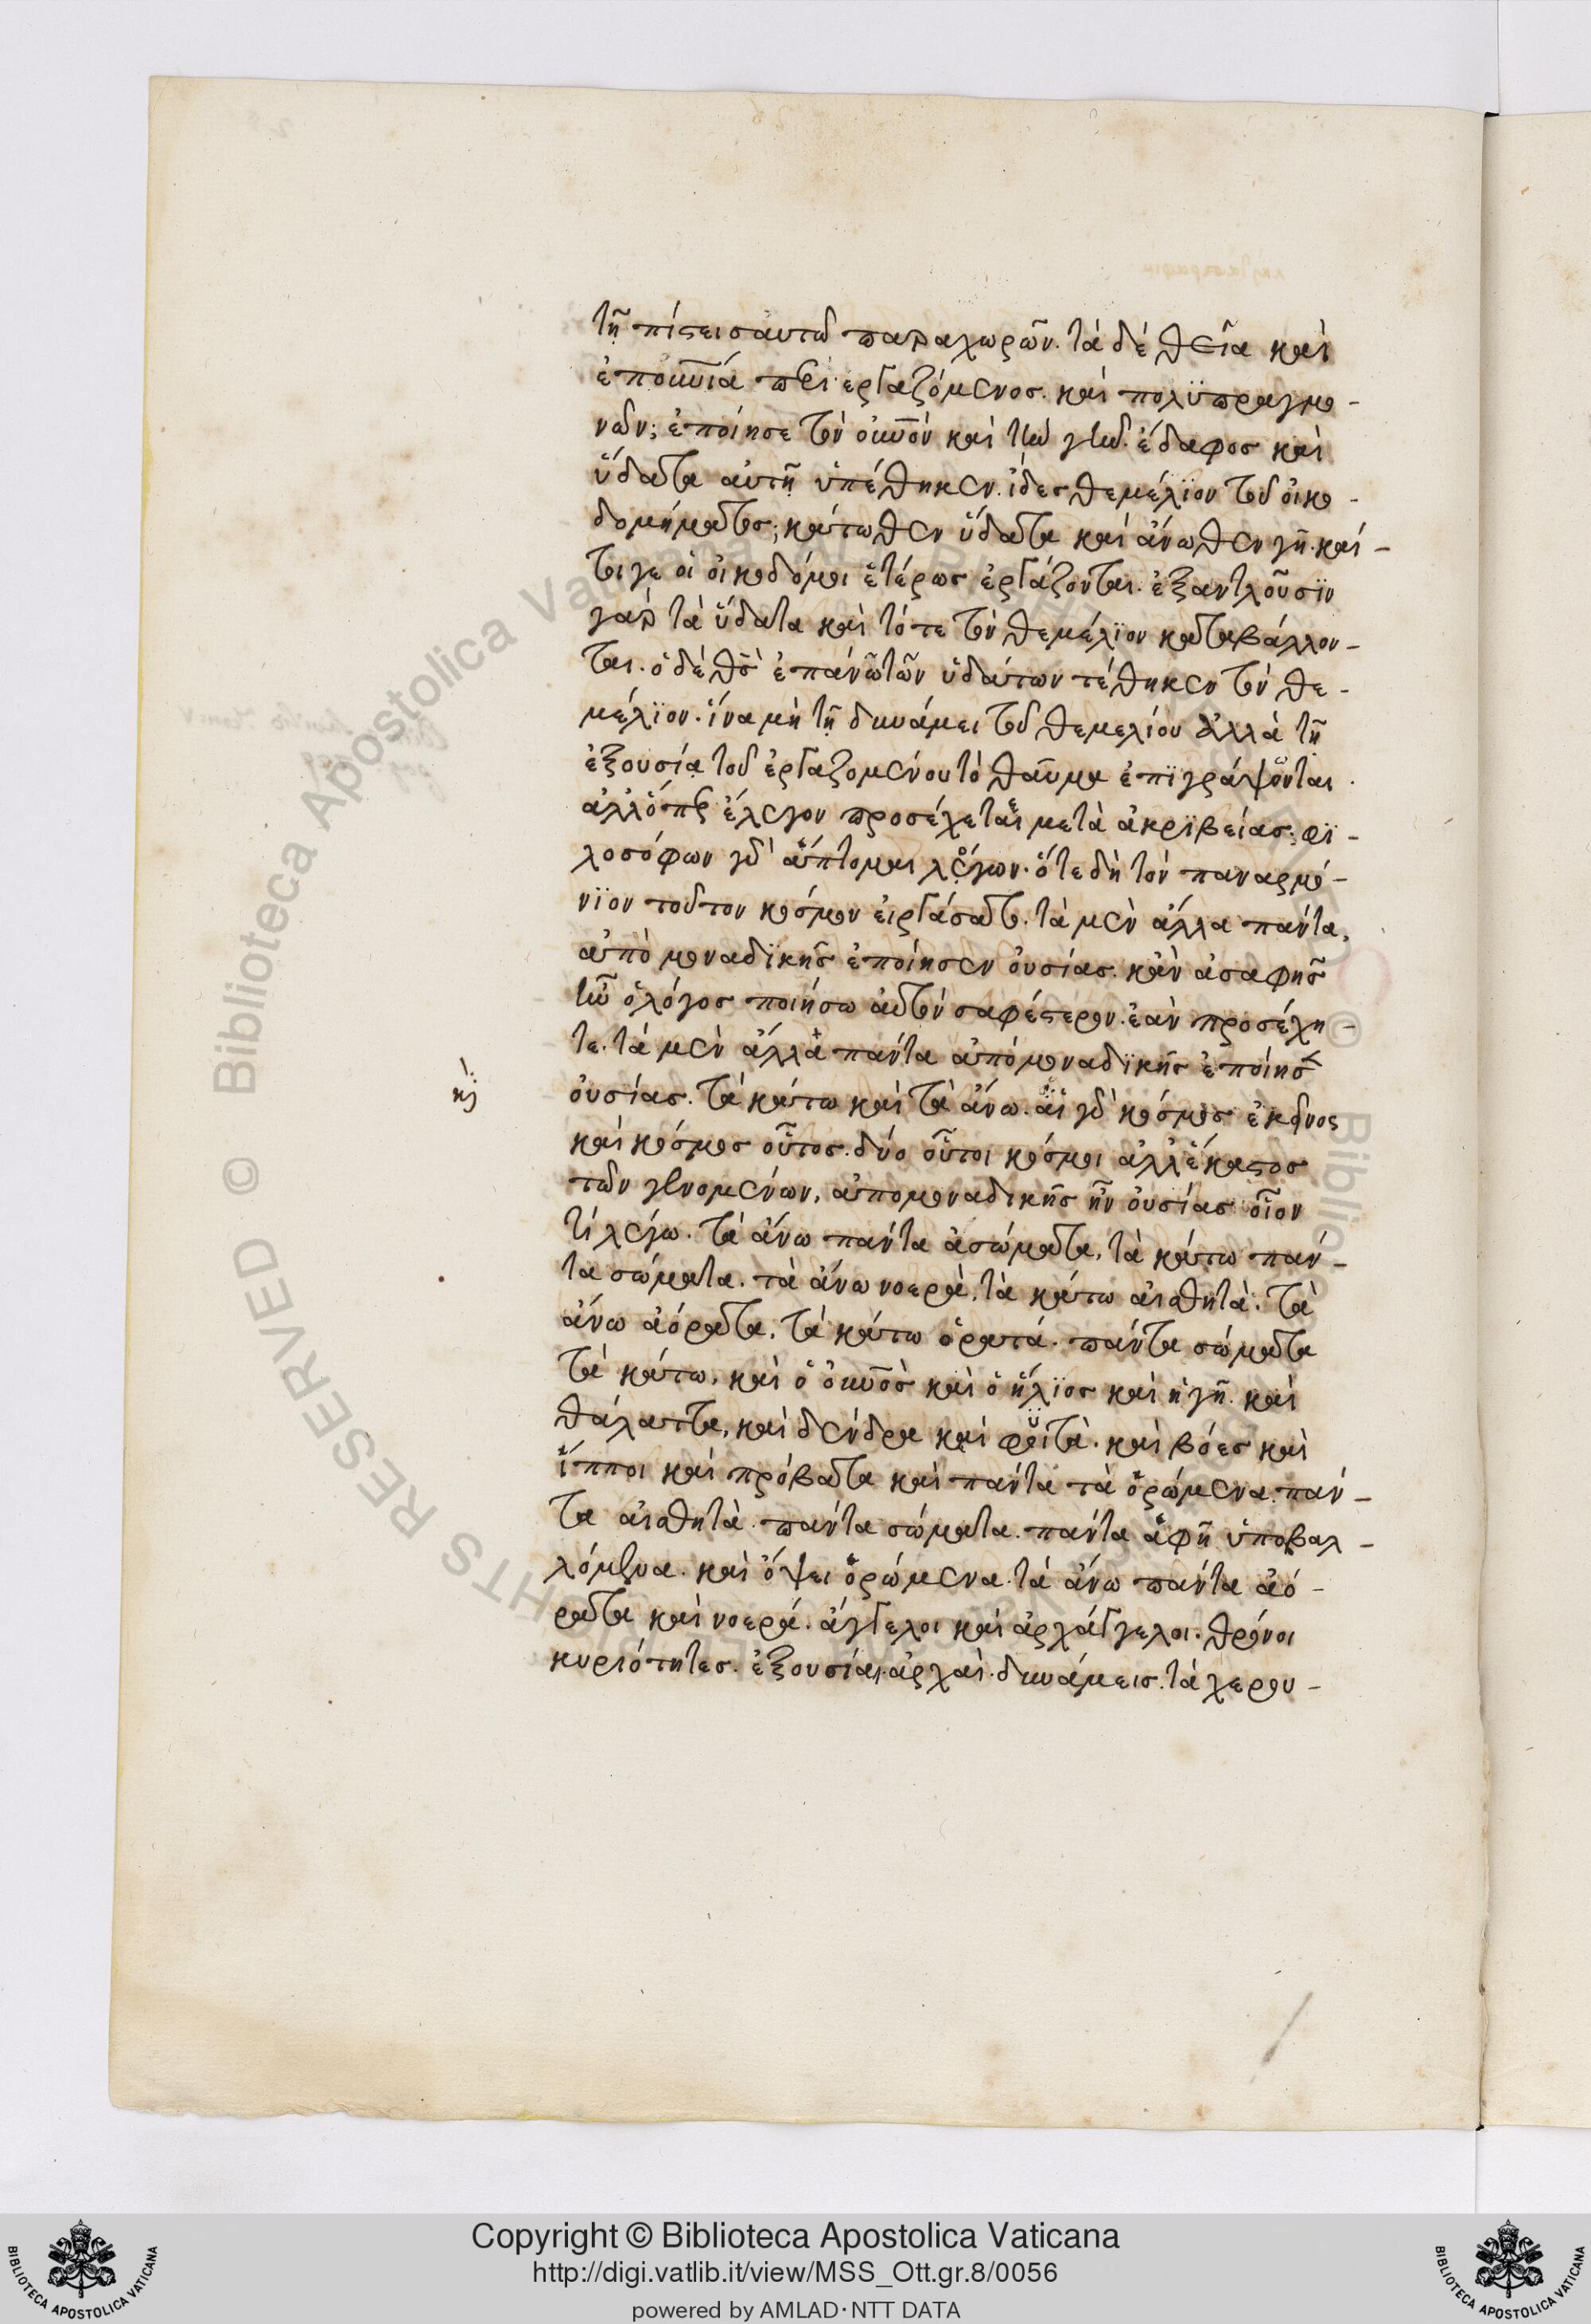 τῆ πίστει σαυτοῦ παραχωρῶν. τὰ δὲ θεῖα καὶ
ἐπουνιά περιεργαζόμενος. καὶ πολϋπραγμο-
νῶν; ἐποίησε τὸν οὐνὸν καὶ τὴν γῆν. ἔδαφος καὶ
ὕδατα αὐτῆ ὑπέθηκεν. ἰδες θεμέλϊον τοῦ οἰκο-
δομήματος; κάτωθεν ὕδατα καὶ ἄνωθεν γῆ. καί-
τοιγε οἱ οἰκοδόμοι ἑτέρως ἐργάζονται. ἐξαντλοῦσϊν
γὰρ τὰ ὕδατα καὶ τότε τὸν θεμέλϊον καταβάλλον-
ται. ὁ δὲ θς ἐπάνω τῶν ὑδάτων τέθηκεν τὸν θε-
μέλϊον. ἵνα μὴ τῆ δυνάμει τοῦ θεμελίου ἀλλὰ τῆ
ἐξουσία τοῦ ἐργαζομένου τὸ θαῦμα ἐπϊγράψονται
ἀλλ' ὅπερ ἔλεγον προσέχεται μετὰ ἀκρϊβείας; φϊ-
λοσόφων γὰρ ἅπτομαι λόγων. ὅτε δὴ τὸν παναρμό-
νϊον τοῦτον κόσμον εἰργάσατο. τὰ μὲν ἄλλα πάντα,
ἀπὸ μοναδϊκῆς ἐποίησεν οὐσίας. κἂν ἀσαφὴς
ἦν ὁ λόγος ποιήσω αὐτὸν σαφέστερον. ἐὰν προσέχη-
τε. τὰ μὲν ἄλλα πάντα ἀπὸ μοναδϊκῆς ἐποίησεν
οὐσίας. τὰ κάτω καὶ τὰ ἄνω. εἰ γὰρ κόσμος ἐκεῖνος
καὶ κόσμος οὗτος. δύο οὗτοι κόσμοι ἀλλ' ἕκαστος
τῶν γενομένων, ἀπομοναδικῆς ἦν οὐσίας οἷον
τί λέγω. τὰ ἄνω πάντα ἀσώματα, τὰ κάτω πάν-
τα σώματα. τὰ ἄνω νοερὰ, τὰ κάτω αἰσθητὰ. τὰ
ἄνω ἀόρατα, τὰ κάτω ὁρατά. πάντα σώματα
τὰ κάτω, καὶ ὁ οὐνὸς καὶ ὁ ἥλϊος καὶ ἡ γῆ. καὶ
θάλαττα, καὶ δένδρα καὶ φϋτὰ. καὶ βόες καὶ
ἵπποι καὶ πρόβατα καὶ πάντα τὰ ὁρώμενα. πάν-
τα αἰσθητὰ. πάντα σώματα. πάντα ἁφῆ ὑποβαλ-
λόμενα. καὶ ὄψει ὁρώμενα. τὰ ἄνω πάντα ἀό-
ρατα καὶ νοερά. ἄγγελοι καὶ ἀρχάγγελοι. θρόνοι
κυριότητες. ἐξουσίαι. ἀρχαὶ. δυνάμεις. τὰ χερου-
Copyright © Biblioteca Apostolica Vaticana
http://digi.vatlib.it/view/MSS_Ott.gr.8/0056
powered by AMLAD · NTT DATA